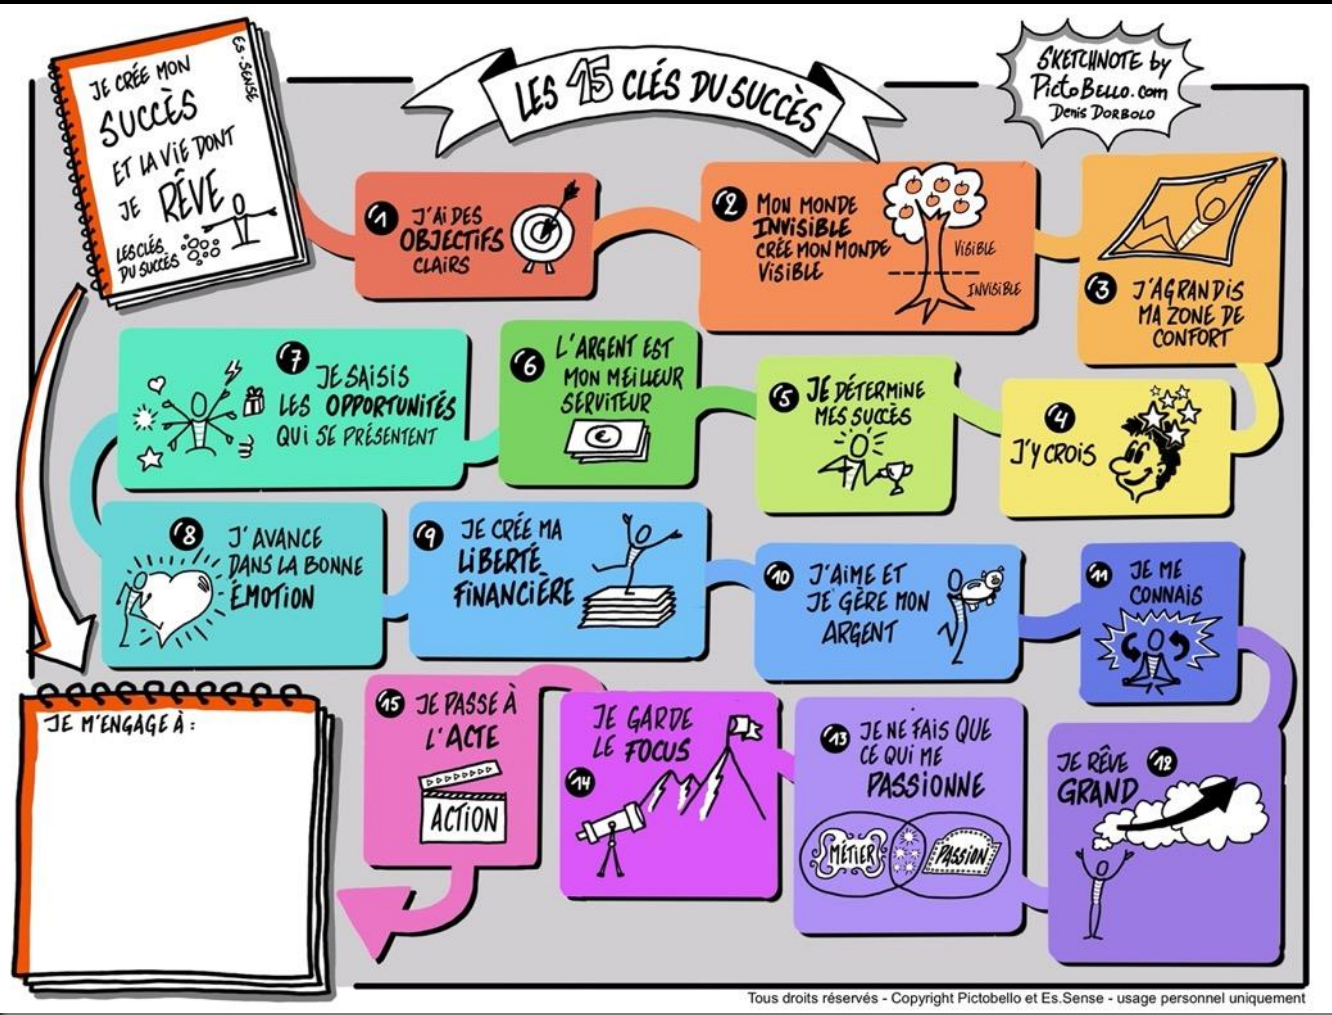 JE CRÉE MON
SUCCÈS
ET LA VIE DONT
JE RÊVE
LES CLÉS
DU SUCCÉS
ES-SENSE
LES 15 CLÉS DU SUCCÈS
SKETCHNOTE by
PictoBello.com
Denis DORBOLO
1 J'AI DES
OBJECTIFS
CLAIRS
2 MON MONDE
INVISIBLE
CRÉE MON MONDE
VISIBLE
VISIBLE
INVISIBLE
3 J'AGRANDIS
MA ZONE DE
CONFORT
4
J'Y CROIS
5 JE DÉTERMINE
MES SUCCÈS
6 L'ARGENT EST
MON MEILLEUR
SERVITEUR
€
7 JE SAISIS
LES OPPORTUNITÉS
QUI SE PRÉSENTENT
8 J'AVANCE
DANS LA BONNE
ÉMOTION
9 JE CRÉE MA
LIBERTÉ
FINANCIÈRE
10 J'AIME ET
JE GÈRE MON
ARGENT
11 JE ME
CONNAIS
JE RÊVE 12
GRAND
13 JE NE FAIS QUE
CE QUI ME
PASSIONNE
MÉTIER
PASSION
JE GARDE
LE FOCUS
14
15 JE PASSE À
L'ACTE
ACTION
JE M'ENGAGE À :
Tous droits réservés - Copyright Pictobello et Es.Sense - usage personnel uniquement